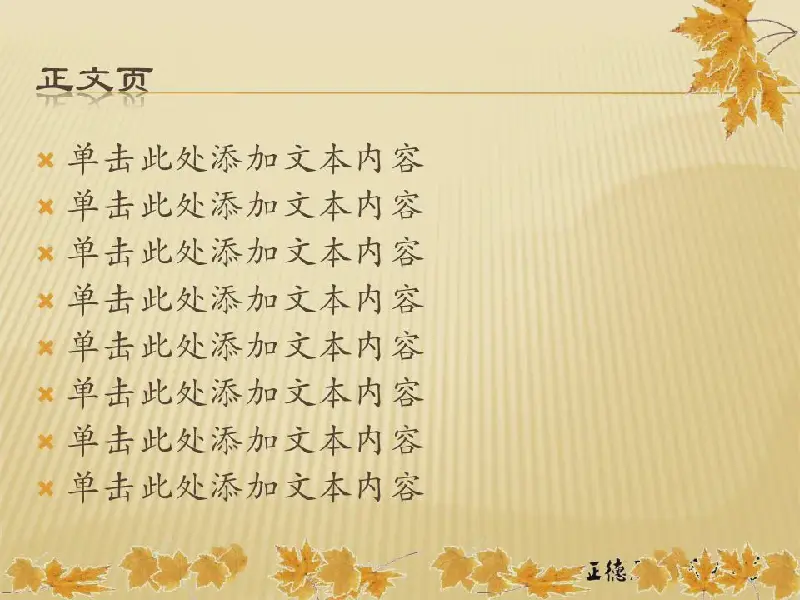 正文页
单击此处添加文本内容
单击此处添加文本内容
单击此处添加文本内容
单击此处添加文本内容
单击此处添加文本内容
单击此处添加文本内容
单击此处添加文本内容
单击此处添加文本内容
正德